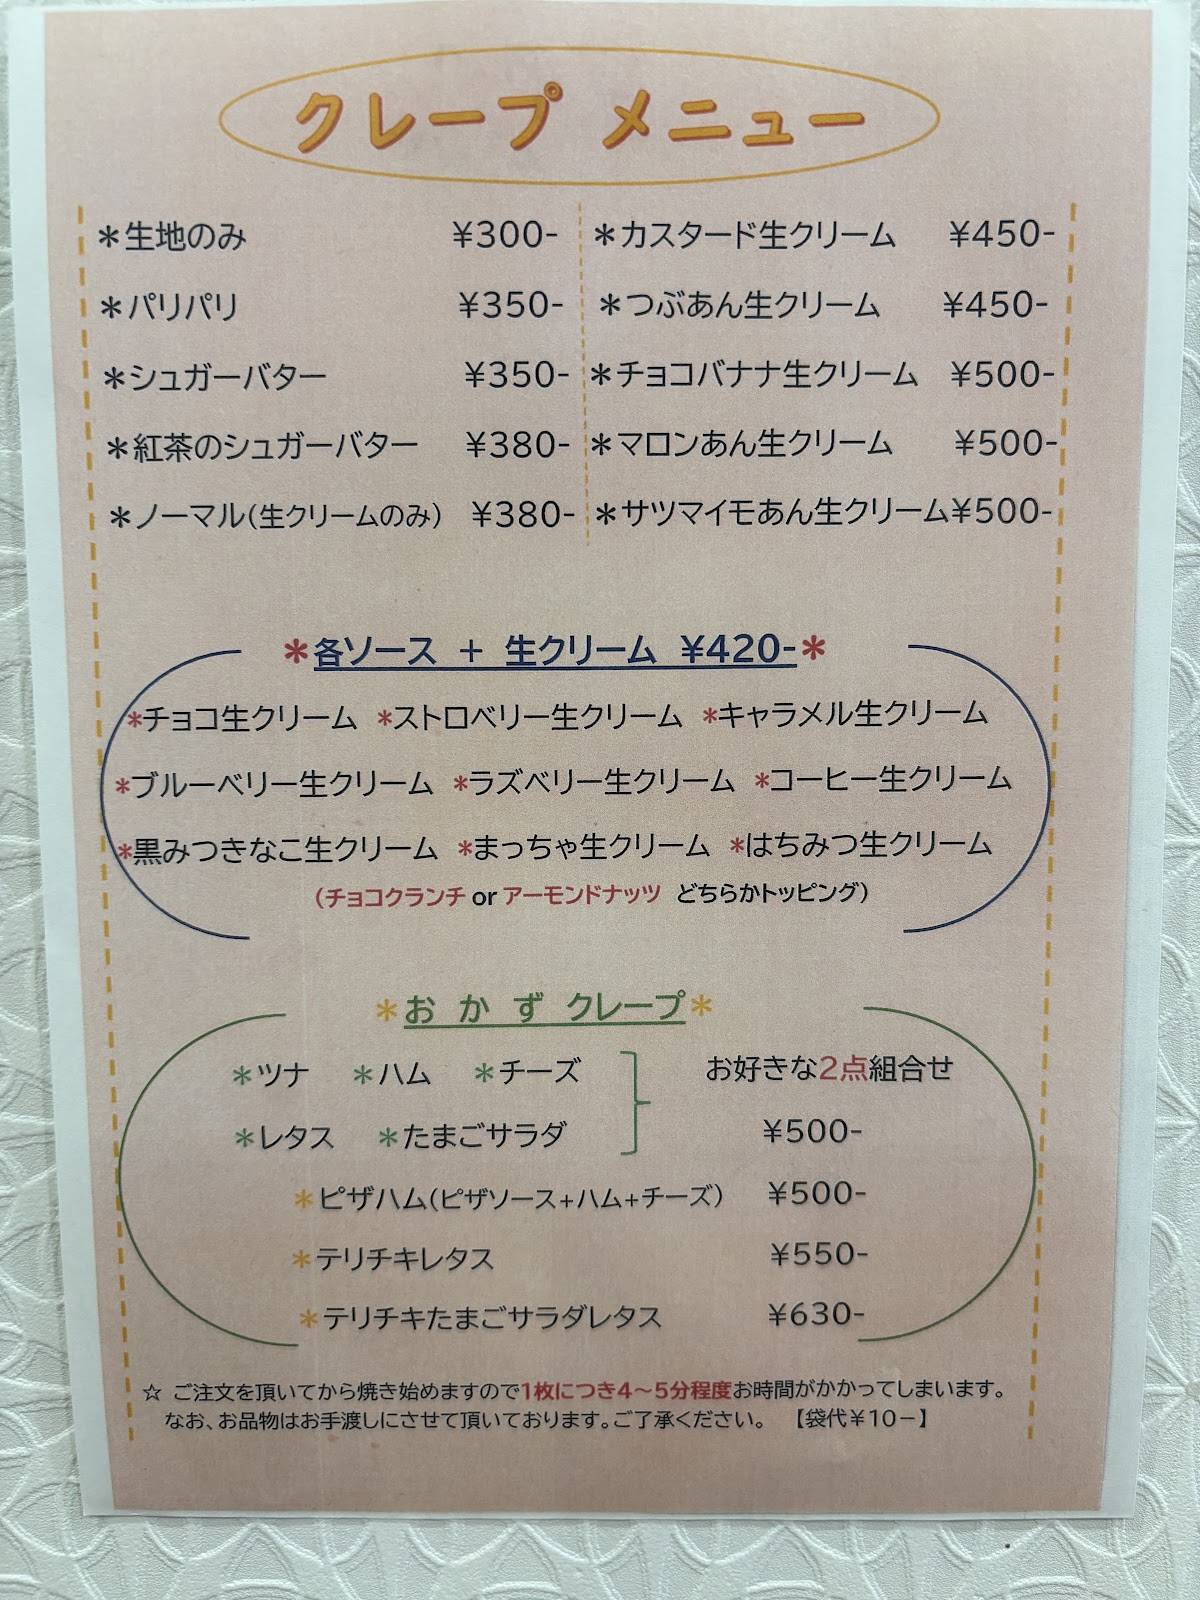 クレープ メニュー
＊生地のみ ¥300-
＊パリパリ ¥350-
＊シュガーバター ¥350-
＊紅茶のシュガーバター ¥380-
＊ノーマル(生クリームのみ) ¥380-
＊カスタード生クリーム ¥450-
＊つぶあん生クリーム ¥450-
＊チョコバナナ生クリーム ¥500-
＊マロンあん生クリーム ¥500-
＊サツマイモあん生クリーム¥500-
＊各ソース + 生クリーム ¥420-＊
＊チョコ生クリーム ＊ストロベリー生クリーム ＊キャラメル生クリーム
＊ブルーベリー生クリーム ＊ラズベリー生クリーム ＊コーヒー生クリーム
＊黒みつきなこ生クリーム ＊まっちゃ生クリーム ＊はちみつ生クリーム
(チョコクランチ or アーモンドナッツ どちらかトッピング)
＊お か ず クレープ＊
＊ツナ ＊ハム ＊チーズ
＊レタス ＊たまごサラダ
お好きな2点組合せ
¥500-
＊ピザハム(ピザソース+ハム+チーズ) ¥500-
＊テリチキレタス ¥550-
＊テリチキたまごサラダレタス ¥630-
☆ ご注文を頂いてから焼き始めますので1枚につき4～5分程度お時間がかかってしまいます。
なお、お品物はお手渡しにさせて頂いております。ご了承ください。 【袋代¥10－】